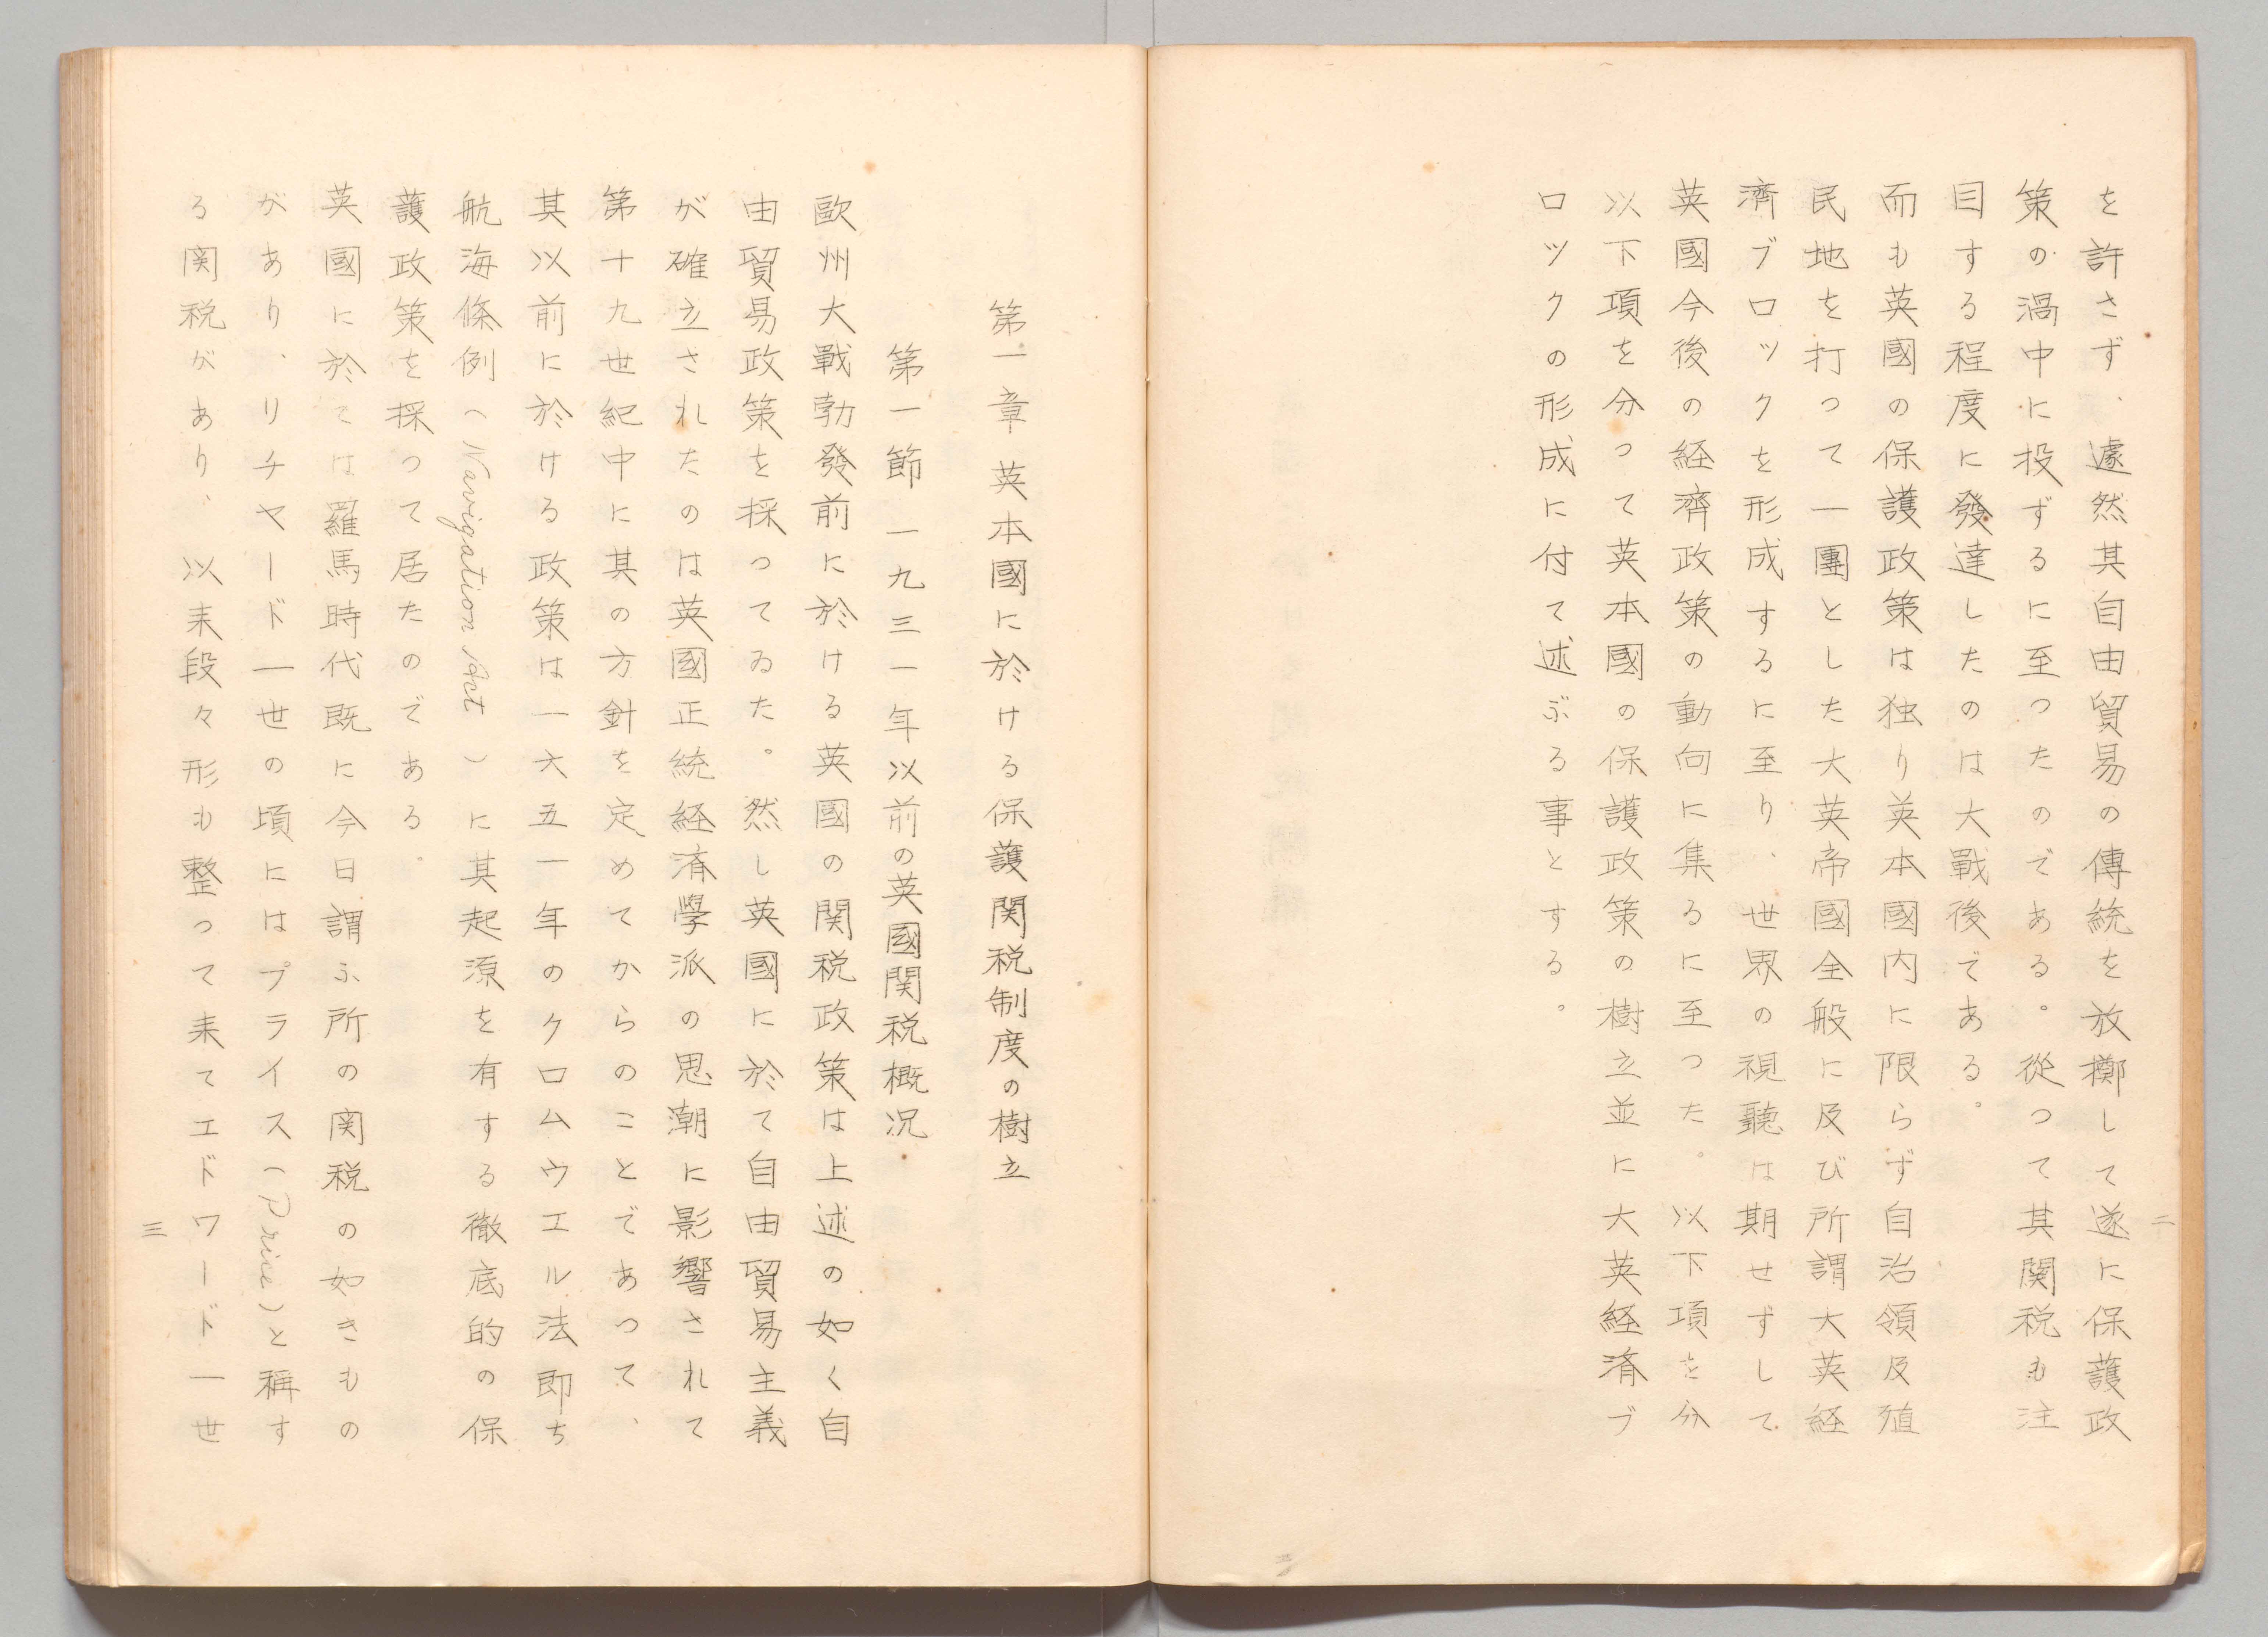 を許さず、遽然其自由貿易の傳統を放擲して遂に保護政
策の渦中に投ずるに至つたのである。從つて其関税も注
目する程度に發達したのは大戰後である。
而も英國の保護政策は独り英本國内に限らず自治領及殖
民地を打つて一團とした大英帝國全般に及び所謂大英経
濟ブロックを形成するに至り、世界の視聽は期せずして
英國今後の経濟政策の動向に集るに至つた。以下項を分
以下項を分つて英本國の保護政策の樹立並に大英経済ブ
ロツクの形成に付て述ぶる事とする。
二
第一章 英本國に於ける保護関税制度の樹立
第一節 一九三一年以前の英國関税概况
歐州大戰勃發前に於ける英國の関税政策は上述の如く自
由貿易政策を採つてゐた。然し英國に於て自由貿易主義
が確立されたのは英國正統経済學派の思潮に影響されて
第十九世紀中に其の方針を定めてからのことであつて、
其以前に於ける政策は一六五一年のクロムウエル法即ち
航海條例(Navigation Act)に其起源を有する徹底的の保
護政策を採つて居たのである。
英國に於ては羅馬時代既に今日謂ふ所の関税の如きもの
があり、リチヤード一世の頃にはプライス(Price)と稱す
る関税があり、以来段々形も整つて来てエドワード一世
三